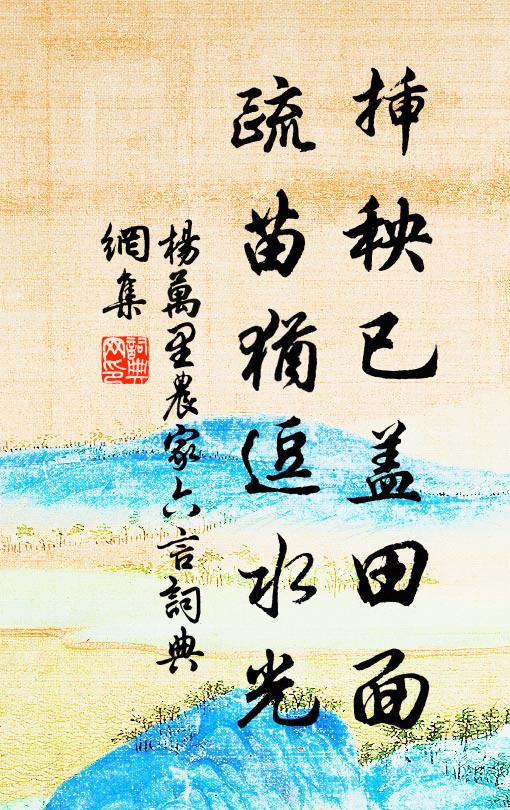 挿秧已盖田面
疏苗猶逗水光
楊萬里農家六言詞典
網集
詞典網印